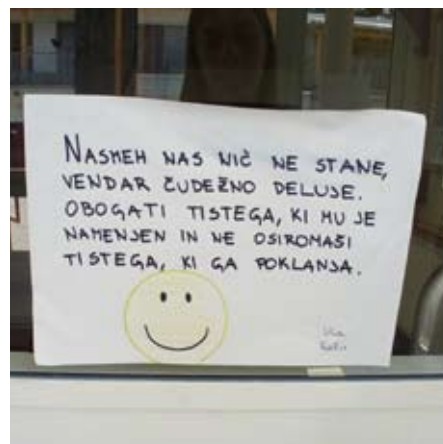 NASMEH NAS NIČ NE STANE,
VENDAR ČUDEŽNO DELUJE.
OBOGATI TISTEGA, KI MU JE
NAMENJEN IN NE OSIROMAŠI
TISTEGA, KI GA POKLANJA.